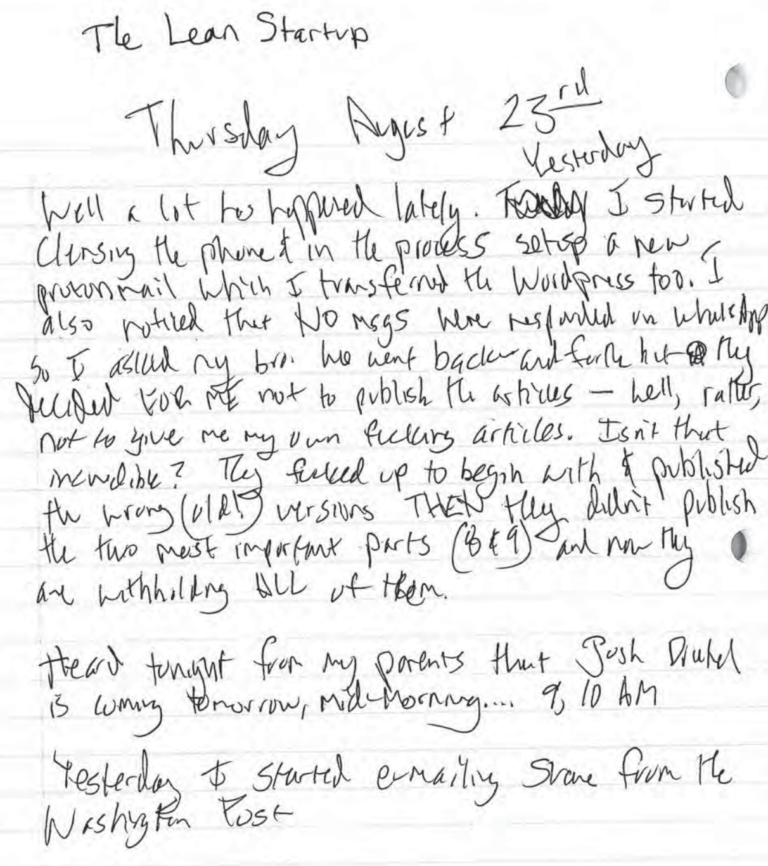 The Lean Startup
Thursday August 23rd
Yesterday
Well a lot has happened lately. I started
cleansing the phone & in the process setup a new
protonmail which I transferred the Wordpress too. I
also noticed that NO msgs were responded on WhatsApp
so I asked my bro. We went back and forth but they
DECIDED FOR ME not to publish the articles — hell, rather,
not to give me my own fucking articles. Isn't that
incredible? They fucked up to begin with & published
the wrong (old!) versions THEN they didn't publish
the two most important parts (8 & 9) and now they
are withholding ALL of them.
Heard tonight from my parents that Josh
is coming tomorrow, mid-morning.... 9, 10 AM
Yesterday I started e-mailing Shane from the
Washington Post